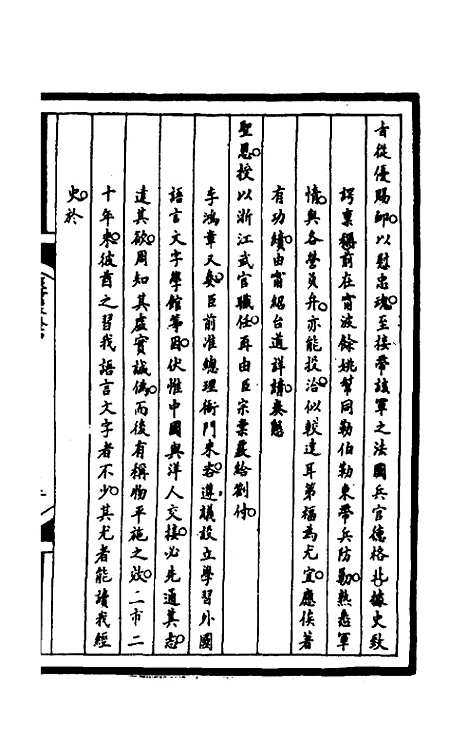 旨從優賜卹以慰忠魂至接帶該軍之法國兵官德格 據史致
諤稟稱前在甯波餘姚幫同勒伯勒東帶兵防勦熟悉軍
情與各營員弁亦能投洽似較達耳第福為尤宜應俟著
有功績由甯紹台道詳請奏懇
聖恩授以浙江武官職任再由臣宗棠嚴給劄付
李鴻章又奏臣前准總理衙門來咨遵議設立學習外國
語言文字學館等因伏惟中國與洋人交接必先通其志
達其欲周知其虛實誠偽而後有稱物平施之效二市二
十年來彼酋之習我語言文字者不少其尤者能讀我經
史於